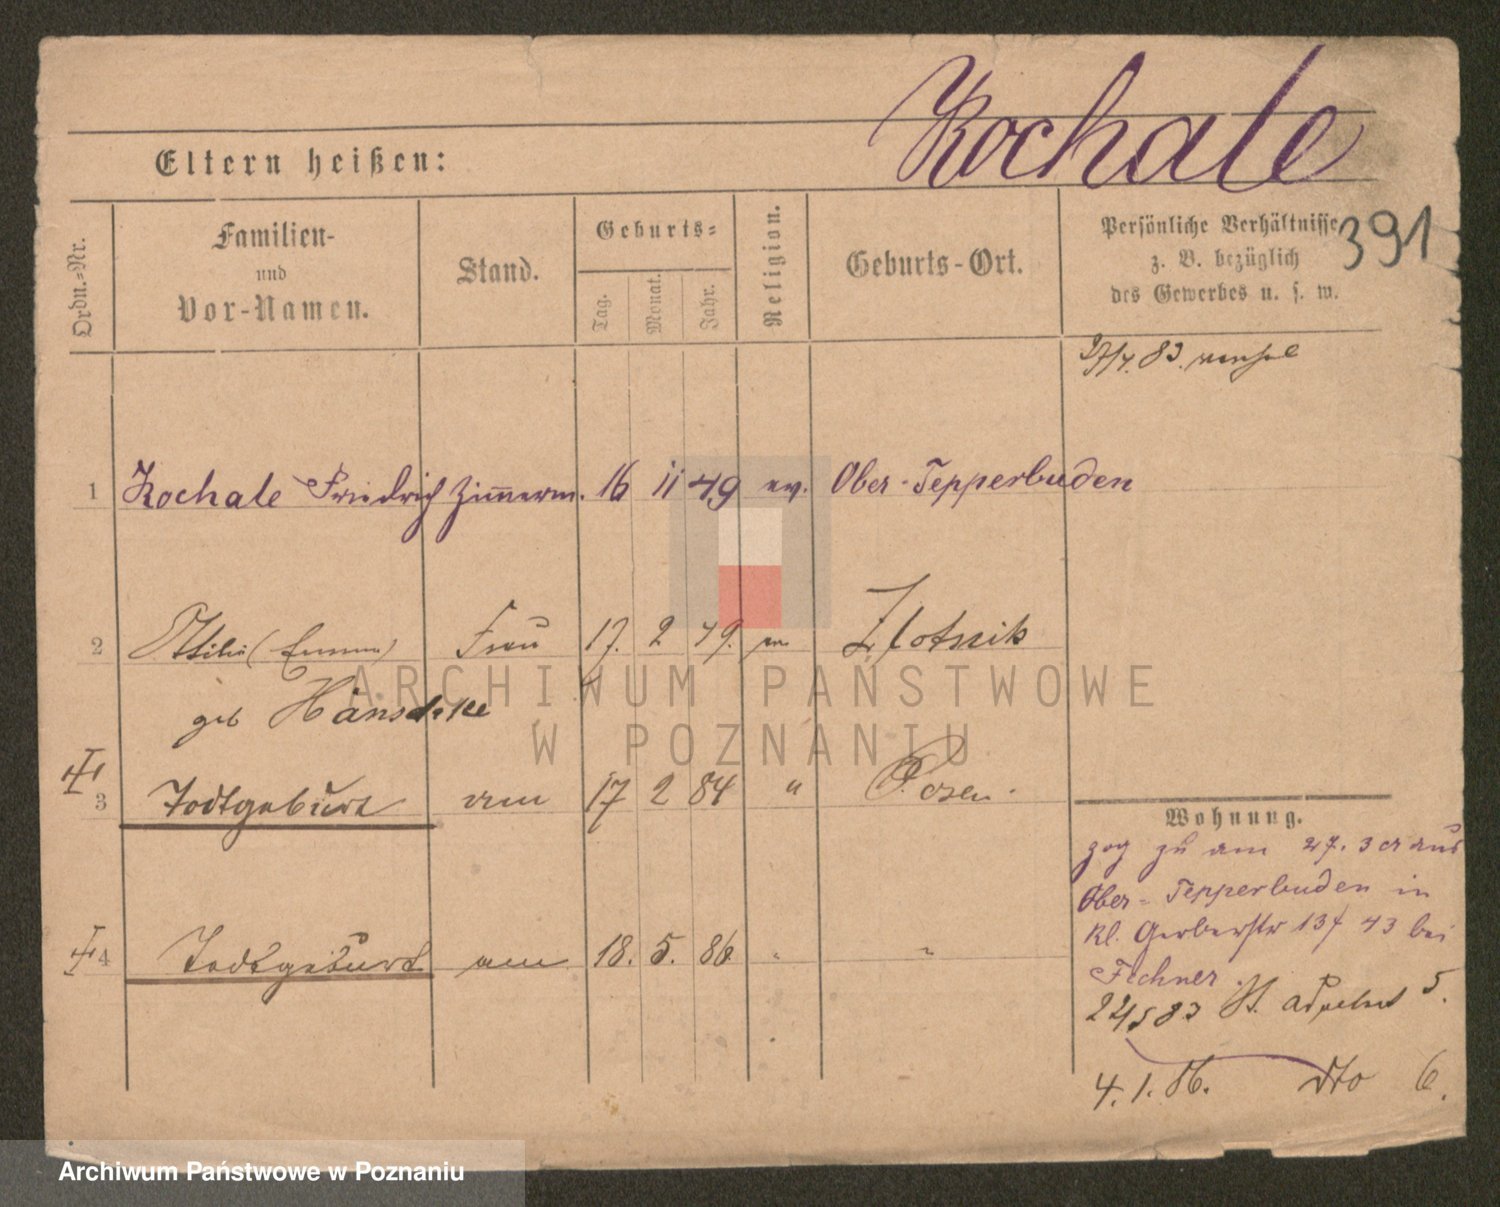 Kochale
Eltern heißen:
391
Ordn.-Nr.
Familien-
und
Vor-Namen.
Stand.
Geburts-
Tag.
Monat.
Jahr.
Religion.
Geburts-Ort.
Persönliche Verhältnisse
z. B. bezüglich
des Gewerbes u. s. w.
1 Kochale Friedrich Zimmerm. 16 11 49 ev. Ober-Tepperbuden
2 Ottilie (Emma) Frau 17. 2 49. Zlotnik
geb
3 Todtgeburt am 17 2 84 " Posen.
4 Todtgeburt am 18. 5. 86. " "
Wohnung.
zog zu am 27. 3 cr aus
Ober-Tepperbuden in
Kl. Gerberstr 137 43 bei
Fechner.
83 St. Adalbert 5.
4. 1. 86. dto 6.
ARCHIWUM PAŃSTWOWE
W POZNANIU
Archiwum Państwowe w Poznaniu